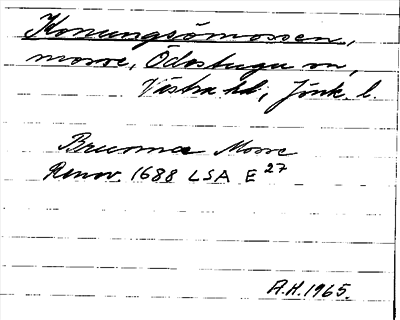 Konungsömossen,
mosse, Ödestugu sn,
Västra hd, Jönk. l.
Brunna Mosse
Renov. 1688 LSA E 27
A.H. 1965.